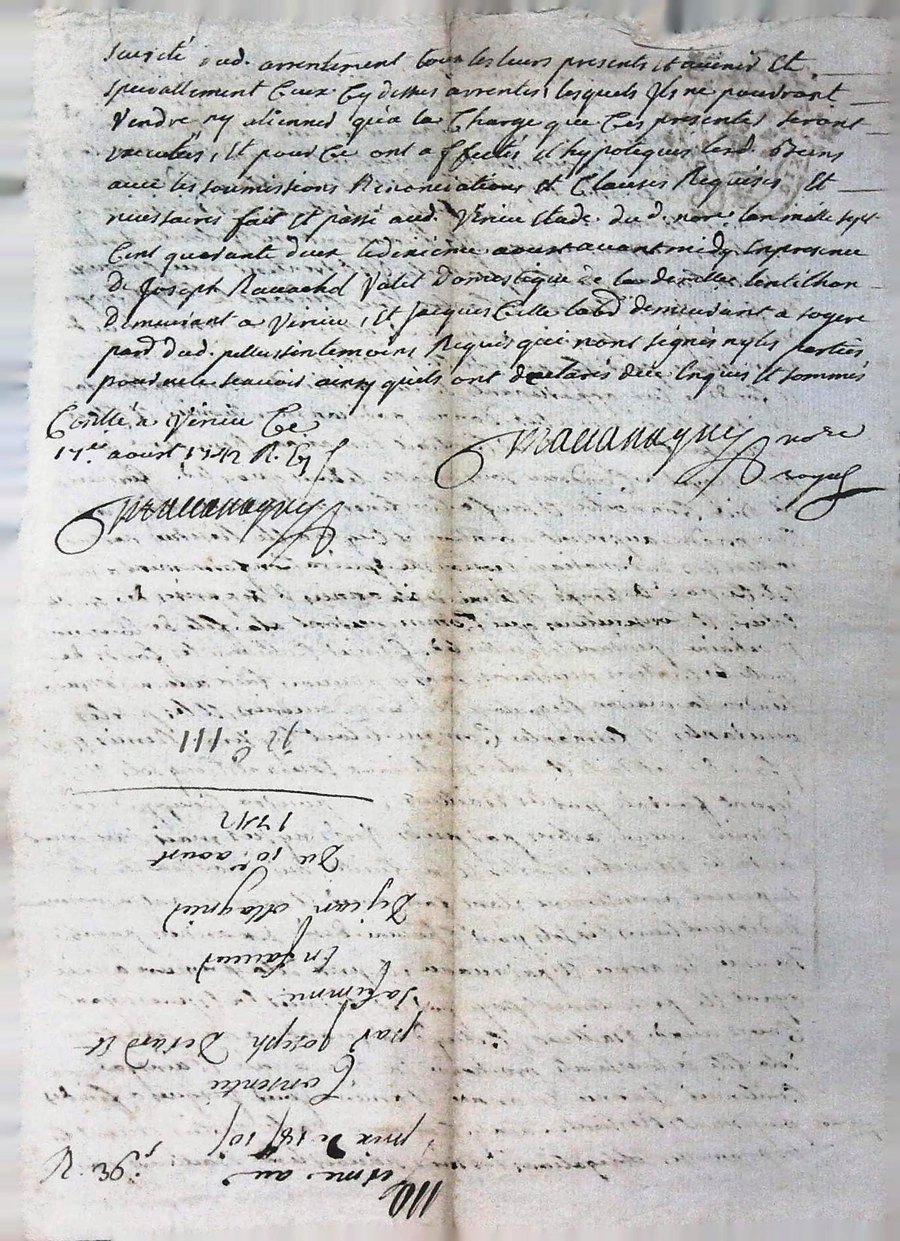 sureté dud. arrentement tous les leurs presents et avenir Et
speciallement Ceux Cy dessus arrentes, lesquels Ils ne pourront
Vendre ny alienner qu'a la Charge que Ces presentes seront
executées, Et pour Ce ont affectés et hypoteques lesd. Biens
avec les soumissions Renonciations et Clauses Requises Et
necessaires fait Et passé aud. Virieu Etude du d. nore. Lan mille sept
Cent quarante deux le dixieme aoust avant midy En presence
de Joseph valet Domestique de la Lentilhon
demeurant a Virieu, Et Jacques demeurant a
parr. dud. pellussin temoins Requis qui n'ont signés ny les parties
pour ne le scavoir ainsy qu'ils ont declarés de ce Enquis Et sommés
Conllé a Virieu Ce
17e. aoust 1742 R.
nore
royal
111
ferme au
prix de 18# 10s
Consentie
par Joseph Et
sa femme
En faveur
De Jean Magnin
Du 10e. aoust
1742
111